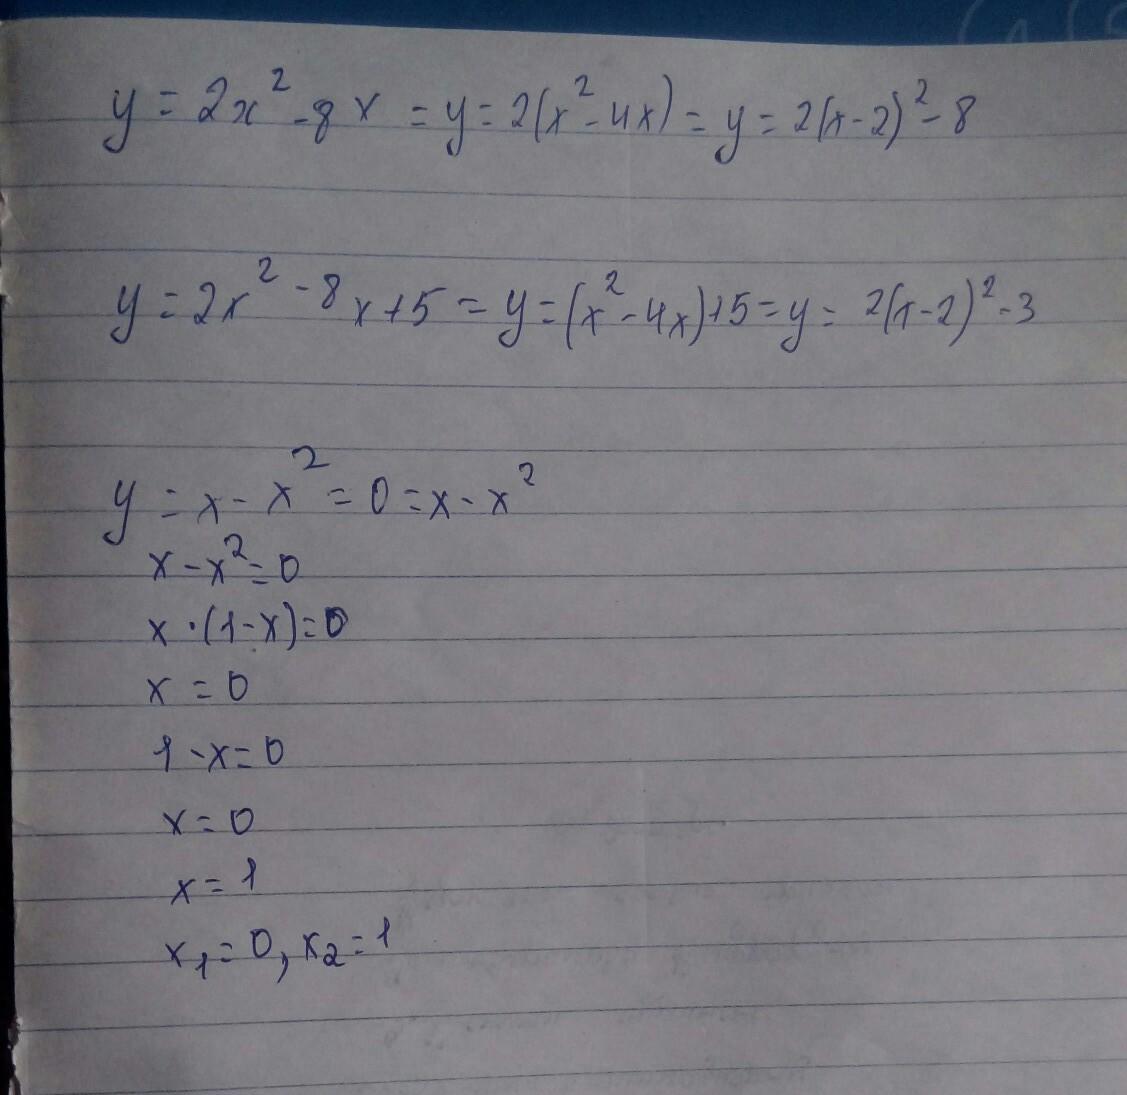 y = 2x² - 8x = y = 2(x² - 4x) = y = 2(x-2)² - 8
y = 2x² - 8x + 5 = y = (x² - 4x) + 5 = y = 2(x-2)² - 3
y = x - x² = 0 = x - x²
x - x² = 0
x · (1 - x) = 0
x = 0
1 - x = 0
x = 0
x = 1
x₁ = 0, x₂ = 1